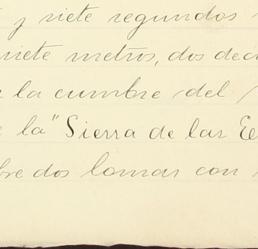 y siete segundos
siete metros, dos dec
la cumbre del
la "Sierra de las Ee
bre dos lomas con